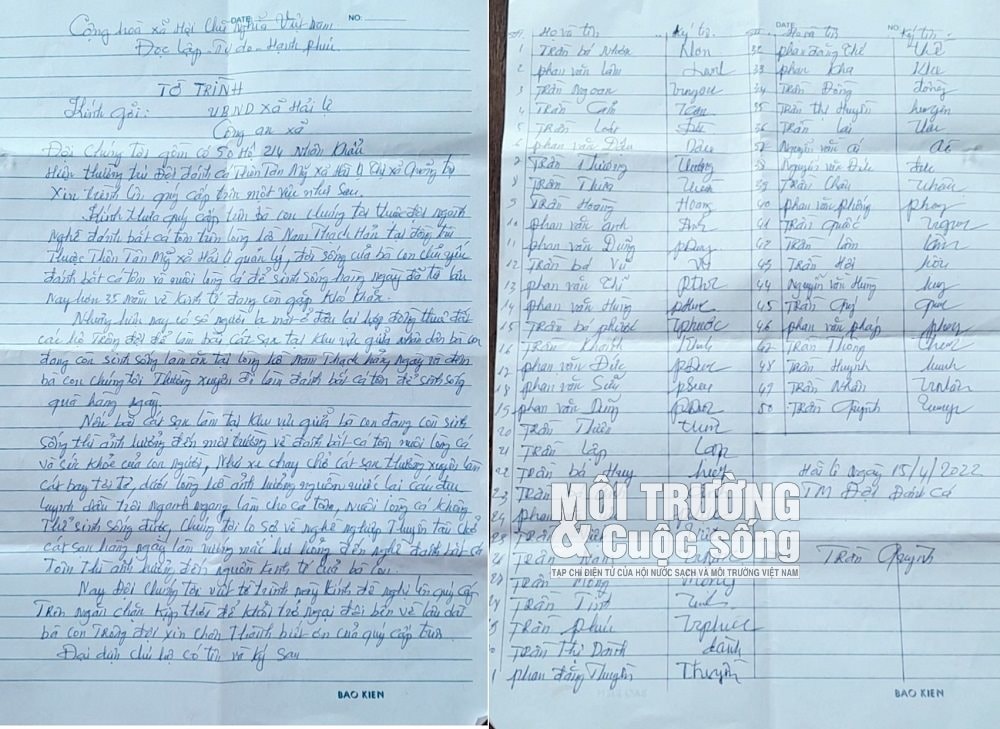 DATE: NO:
Cộng hoà xã Hội Chủ nghĩa Việt Nam
Độc lập - Tự do - Hạnh phúc
TỜ TRÌNH
Kính gửi: UBND xã Hải Lệ
Công an xã
Đội Chúng tôi gồm có 50 Hộ 214 Nhân Khẩu
Hiện thường trú Đội đánh cá Thôn Tân Mỹ xã Hải Lệ Thị xã Quảng Trị
Xin trình lên quý cấp trên một việc như sau.
Kính thưa quý cấp trên bà con chúng tôi thuộc đội ngành
Nghề đánh bắt cá tôm trên lòng hồ Nam Thạch Hãn tại
Thuộc Thôn Tân Mỹ xã Hải Lệ quản lý, đời sống của bà con chủ yếu
đánh bắt cá tôm và nuôi lồng cá để sinh sống hàng ngày đã từ lâu
Nay hơn 35 năm về kinh tế đang còn gặp khó khăn.
Nhưng hiện nay có số người lạ mặt ở đâu lại hợp đồng thuê đất
các hồ Trong đội để làm bãi cát sạn tại khu vực giữa nhân dân bà con
đang còn sinh sống làm ăn tại lòng hồ Nam Thạch hãng ngày và đêm
bà con chúng tôi Thường xuyên đi làm đánh bắt cá tôm để sinh sống
qua hàng ngày.
Nếu bãi cát sạn làm tại khu vực giữa bà con đang còn sinh
sống thì ảnh hưởng đến môi trường về đánh bắt cá tôm nuôi lồng cá
và sức khoẻ của con người, Như xe chạy chở cát sạn thường xuyên làm
cát bay tới tơ, dưới lòng hồ ảnh hưởng nguồn nước lại cáu đục
luynh dầu trôi ngang làm cho cá tôm, nuôi lồng cá không
Thể sinh sống được, Chúng tôi lo sợ về nghề nghiệp Thuyền tàu chở
cát sạn hàng ngày làm vướng mắc hư hỏng đến nghề đánh bắt cá
Tôm Thì ảnh hưởng đến nguồn kinh tế của bà con.
Nay Đội Chúng Tôi viết tờ trình này kính đề nghị lên quý cấp
Trên ngăn chặn kịp thời để khỏi trở ngại đôi bên về lâu dài
bà con Trong đội xin chân thành biết ơn của quý cấp trên.
Đại diện chủ hộ có tên và ký sau
BAO KIEN
DATE: NO:
TT. Họ và tên Ký tên
1 Trần bá Nhơn Nhơn
2 phan văn Lâm
3 Trần Ngoan
4 Trần Cảnh
5 Trần
6 phan văn Dấu Dấu
7 Trần Thương Thương
8 Trần Thưa
9 Trần Hoàng Hoàng
10 phan văn ánh
11 phan văn Dũng
12 Trần bá Vũ Vũ
13 phan văn Thi
14 phan văn Hùng
15 Trần bá phước Tphước
16 Trần Khánh
17 phan văn Đức
18 phan văn
19 phan văn Dũng
20 Trần Thiên
21 Trần lập lập
22 Trần bá Huy huy
23 Trần
24 phan
25
26 Trần
27 Trần Mộng Mộng
28 Trần Tình Tình
29 Trần phúc Tphúc
30 Trần Thị Dành dành
31 phan đăng Thuyền Thuyền
TT. Họ và tên Ký tên
32 phan đăng Thể Thể
33 phan Kha Kha
34 Trần Đồng đồng
35 Trần thị Huyền huyền
36 Trần lai
37 Nguyễn văn cá
38 Nguyễn văn Đức đức
39 Trần Châu
40 phan văn phong phong
41 Trần quốc
42 Trần lâm lâm
43 Trần Hội
44 Nguyễn văn Hùng hùng
45 Trần Quý quý
46 phan văn pháp
47 Trần Thông
48 Trần Huỳnh
49 Trần Nhân
50 Trần Quỳnh
Hải lệ Ngày 15/4/2022
TM Đội Đánh Cá
Trần Quỳnh
MÔI TRƯỜNG
& Cuộc sống
TẠP CHÍ ĐIỆN TỬ CỦA HỘI NƯỚC SẠCH VÀ MÔI TRƯỜNG VIỆT NAM
BAO KIEN